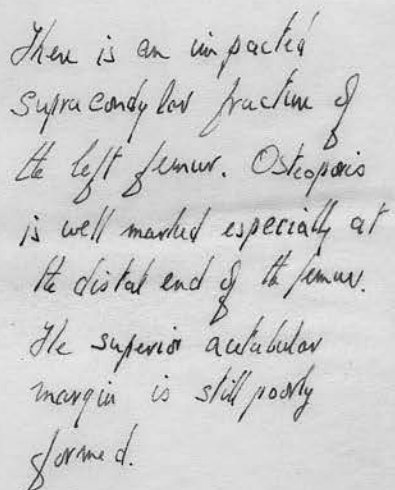 There is an impacted
supracondylar fracture of
the left femur. Osteoporis
is well marked especially at
the distal end of the femur.
The superior acetabular
margin is still poorly
formed.